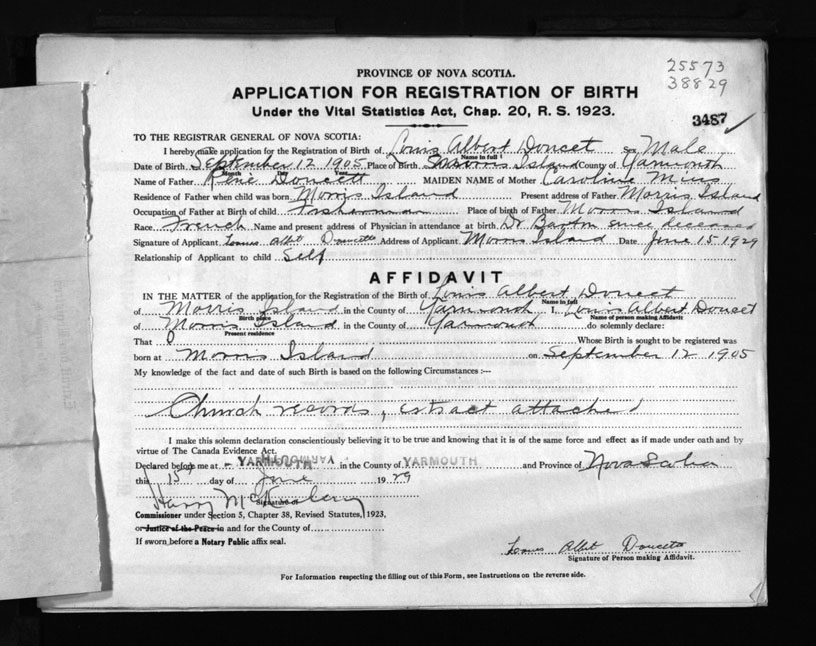 25573
38829
3487
PROVINCE OF NOVA SCOTIA.
APPLICATION FOR REGISTRATION OF BIRTH
Under the Vital Statistics Act, Chap. 20, R. S. 1923.
TO THE REGISTRAR GENERAL OF NOVA SCOTIA:
I hereby make application for the Registration of Birth of Louis Albert Doucet a Male
Name in full
Date of Birth September 12 1905 Place of Birth Morris Island County of Yarmouth
Month Day Year
Name of Father Doucett MAIDEN NAME of Mother Caroline
Residence of Father when child was born Morris Island Present address of Father Morris Island
Occupation of Father at Birth of child Fisherman Place of birth of Father Morris Island
Race French Name and present address of Physician in attendance at birth Dr Barton since deceased
Signature of Applicant Address of Applicant Morris Island Date June 15 1929
Relationship of Applicant to child Self
AFFIDAVIT
IN THE MATTER of the application for the Registration of the Birth of Louis Albert Doucet
Name in full
of Morris Island in the County of Yarmouth I, Louis Albert Doucet
Birth place Name of person making Affidavit
of Morris Island in the County of Yarmouth do solemnly declare:
Present residence
That I Whose Birth is sought to be registered was
born at Morris Island on September 12 1905
My knowledge of the fact and date of such Birth is based on the following Circumstances :—
Church records, extract attached
I make this solemn declaration conscientiously believing it to be true and knowing that it is of the same force and effect as if made under oath and by
virtue of The Canada Evidence Act.
Declared before me at YARMOUTH in the County of YARMOUTH and Province of Nova Scotia
this 15th day of June 1929
Harry
Signature of
Commissioner under Section 5, Chapter 38, Revised Statutes, 1923,
or Justice of the Peace in and for the County of
If sworn before a Notary Public affix seal.
Signature of Person making Affidavit.
For Information respecting the filling out of this Form, see Instructions on the reverse side.